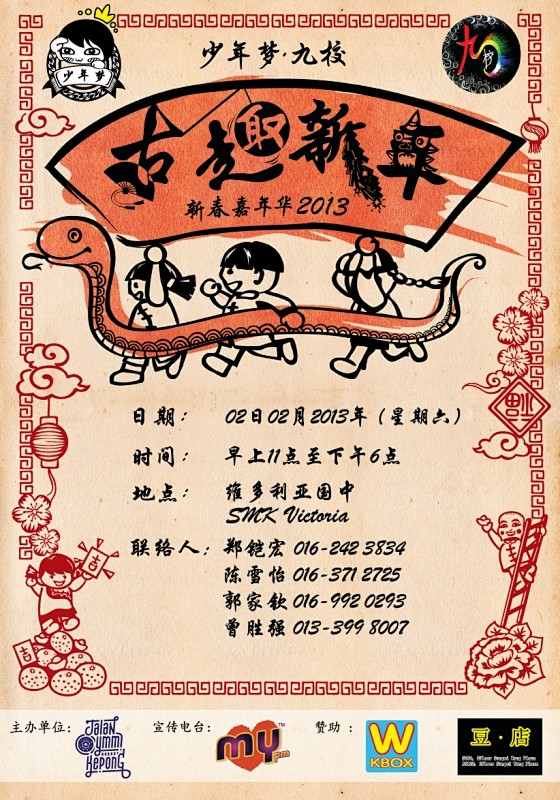 少年梦·九校
少年梦
九校
古趣新年
新春嘉年华2013
日期： 02日02月2013年（星期六）
时间： 早上11点至下午6点
地点： 维多利亚国中
SMK Victoria
联络人： 郑铠宏 016-242 3834
陈雪怡 016-371 2725
郭家钦 016-992 0293
曾胜强 013-399 8007
福
吉
吉
主办单位：
Jalan
Kepong
宣传电台：
my fm
TM
赞助：
W
KBOX
豆·店